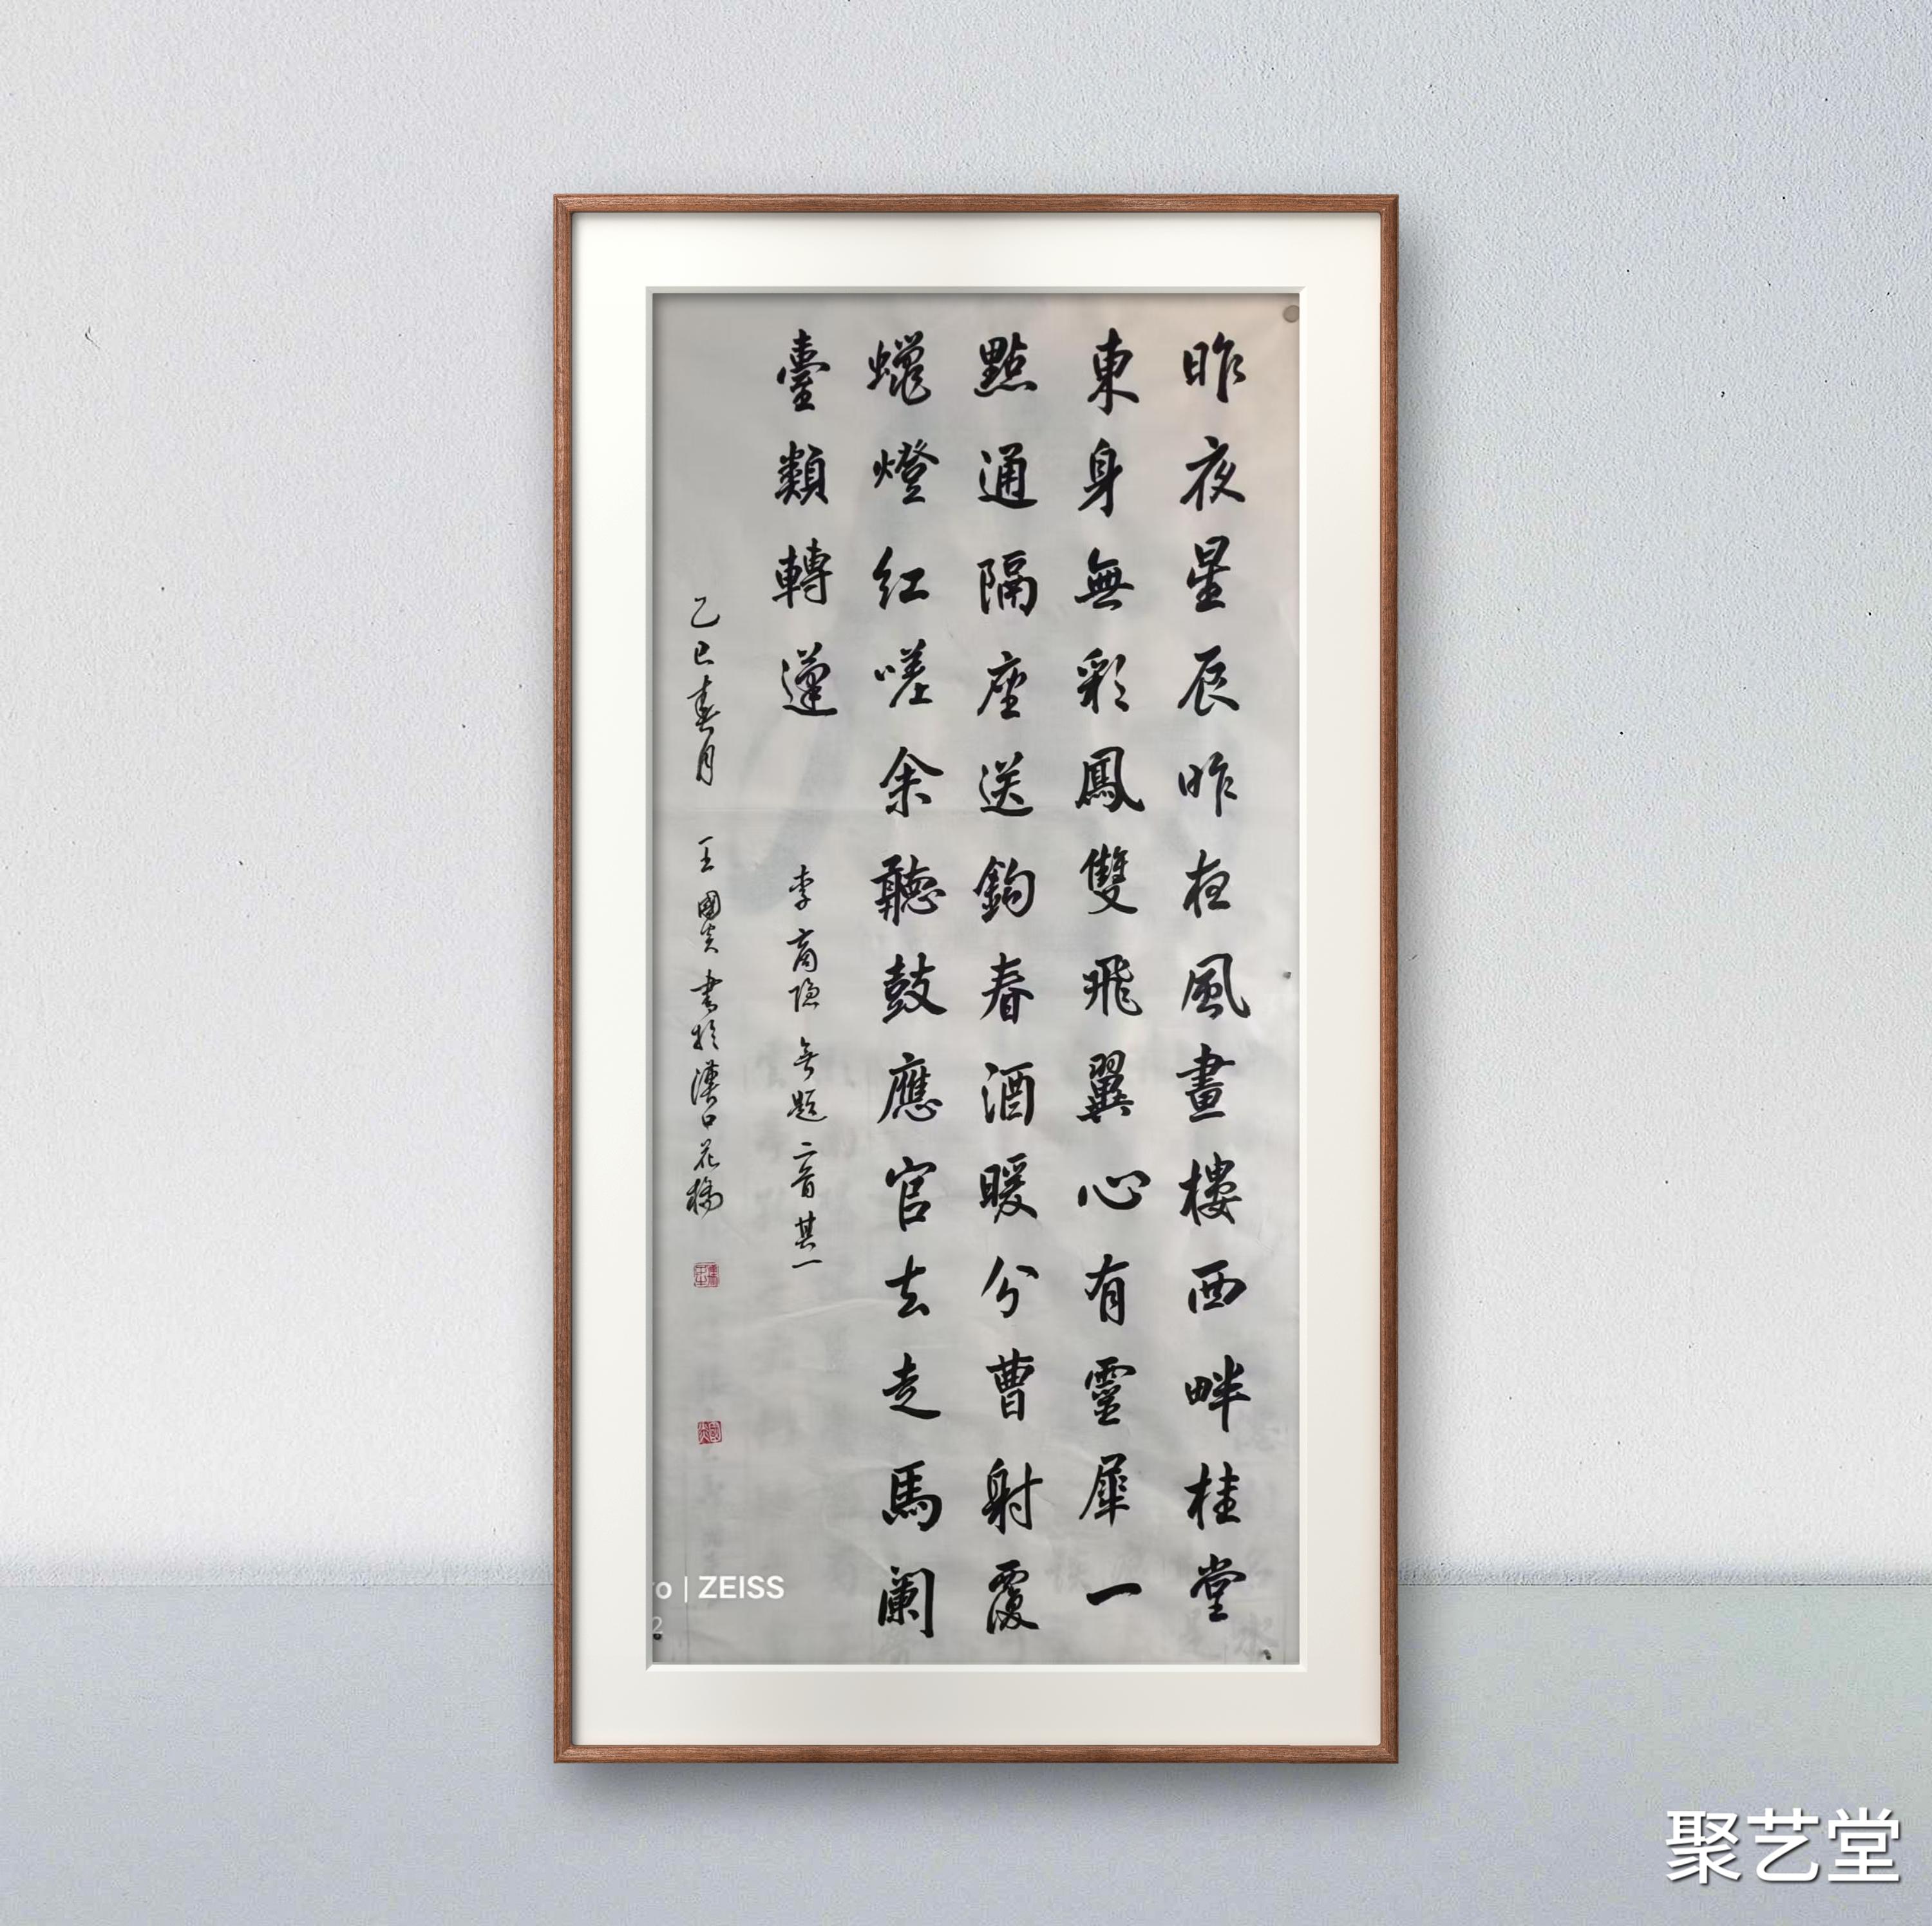 昨夜星辰昨夜風畫樓西畔桂堂
東身無彩鳳雙飛翼心有靈犀一
點通隔座送鈎春酒暖分曹射覆
蠟燈紅嗟余聽鼓應官去走馬闌
臺類轉蓬
李商隱 無題二首其一
乙巳春月 王國炎書於漢口花橋
ro | ZEISS
2
聚艺堂